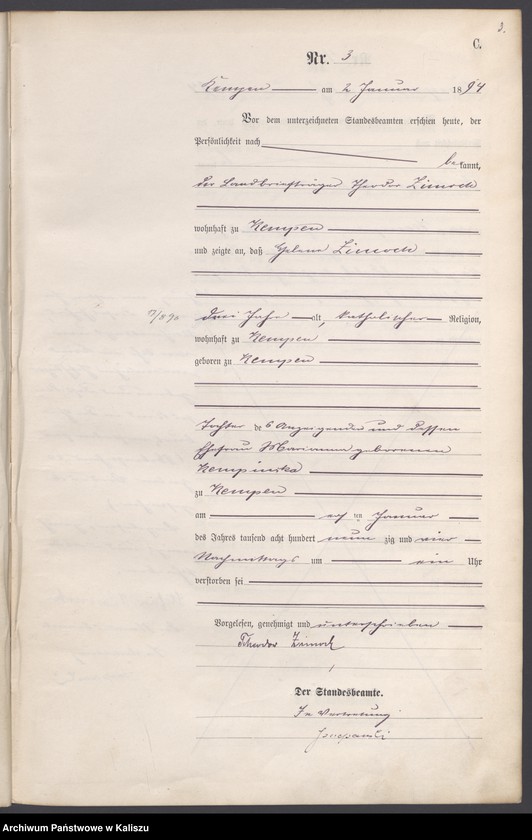 3.
C.
Nr. 3
Kempen am 2 Januar 1894
Vor dem unterzeichneten Standesbeamten erschien heute, der
Persönlichkeit nach
bekannt,
der Landbriefträger Theodor Zimoch
wohnhaft zu Kempen
und zeigte an, daß Helene Zimoch
drei Jahr alt, katholischer Religion,
wohnhaft zu Kempen
geboren zu Kempen
Tochter des Anzeigenden und dessen
Ehefrau Marianna geborenen
Kempinska
zu Kempen
am ten Januar
des Jahres tausend acht hundert neunzig und vier
Nachmittags um ein Uhr
verstorben sei
Vorgelesen, genehmigt und unterschrieben
Theodor Zimoch
Der Standesbeamte.
In Vertretung
Archiwum Państwowe w Kaliszu